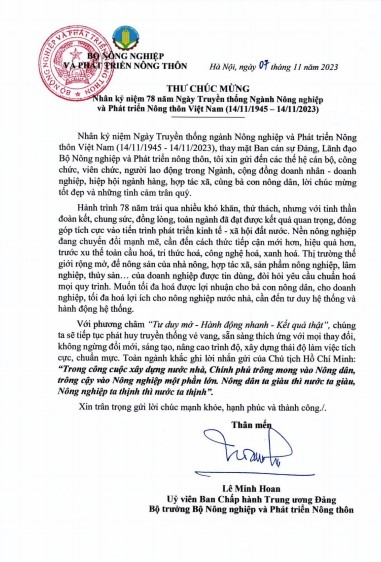 BỘ NÔNG NGHIỆP
VÀ PHÁT TRIỂN NÔNG THÔN
Hà Nội, ngày 07 tháng 11 năm 2023
THƯ CHÚC MỪNG
Nhân kỷ niệm 78 năm Ngày Truyền thống Ngành Nông nghiệp
và Phát triển Nông thôn Việt Nam (14/11/1945 – 14/11/2023)
Nhân kỷ niệm Ngày Truyền thống ngành Nông nghiệp và Phát triển Nông
thôn Việt Nam (14/11/1945 - 14/11/2023), thay mặt Ban cán sự Đảng, Lãnh đạo
Bộ Nông nghiệp và Phát triển nông thôn, tôi xin gửi đến các thế hệ cán bộ, công
chức, viên chức, người lao động trong Ngành, cộng đồng doanh nhân - doanh
nghiệp, hiệp hội ngành hàng, hợp tác xã, cùng bà con nông dân, lời chúc mừng
tốt đẹp và những tình cảm trân quý.
Hành trình 78 năm trải qua nhiều khó khăn, thử thách, nhưng với tinh thần
đoàn kết, chung sức, đồng lòng, toàn ngành đã đạt được kết quả quan trọng, đóng
góp tích cực vào tiến trình phát triển kinh tế - xã hội đất nước. Nền nông nghiệp
đang chuyển đổi mạnh mẽ, cần đến cách thức tiếp cận mới hơn, hiệu quả hơn,
trước xu thế toàn cầu hoá, tri thức hoá, công nghệ hoá, xanh hoá. Thị trường thế
giới rộng mở, để nông sản của nhà nông, hợp tác xã, sản phẩm nông nghiệp, lâm
nghiệp, thủy sản… của doanh nghiệp được tin dùng, đòi hỏi yêu cầu chuẩn hoá
mọi quy trình. Muốn tối đa hoá được lợi nhuận cho bà con nông dân, cho doanh
nghiệp, tối đa hoá lợi ích cho nông nghiệp nước nhà, cần đến tư duy hệ thống và
hành động hệ thống.
Với phương châm “Tư duy mở - Hành động nhanh - Kết quả thật”, chúng
ta sẽ tiếp tục phát huy truyền thống vẻ vang, sẵn sàng thích ứng với mọi thay đổi,
không ngừng đổi mới, sáng tạo, nâng cao trình độ, xây dựng thái độ làm việc tích
cực, chuẩn mực. Toàn ngành khắc ghi lời nhắn gửi của Chủ tịch Hồ Chí Minh:
“Trong công cuộc xây dựng nước nhà, Chính phủ trông mong vào Nông dân,
trông cậy vào Nông nghiệp một phần lớn. Nông dân ta giàu thì nước ta giàu,
Nông nghiệp ta thịnh thì nước ta thịnh”.
Xin trân trọng gửi lời chúc mạnh khỏe, hạnh phúc và thành công./.
Thân mến
Lê Minh Hoan
Uỷ viên Ban Chấp hành Trung ương Đảng
Bộ trưởng Bộ Nông nghiệp và Phát triển Nông thôn